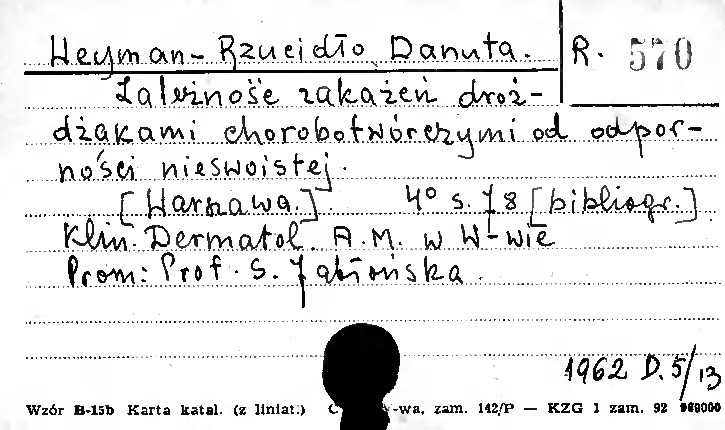 Heyman-Rzucidło Danuta. R. 570
Zależność zakażeń droż-
dżakami chorobotwórczymi od odpor-
ności nieswoistej.
[Warszawa.] 4° s. 78 [bibliogr.]
Klin. Dermatol. A.M. w W-wie
Prom: Prof. S. Jabłońska.
1962 D. 5/13
Wzór B-15b Karta katal. (z liniat.) -wa, zam. 142/P — KZG 1 zam. 92